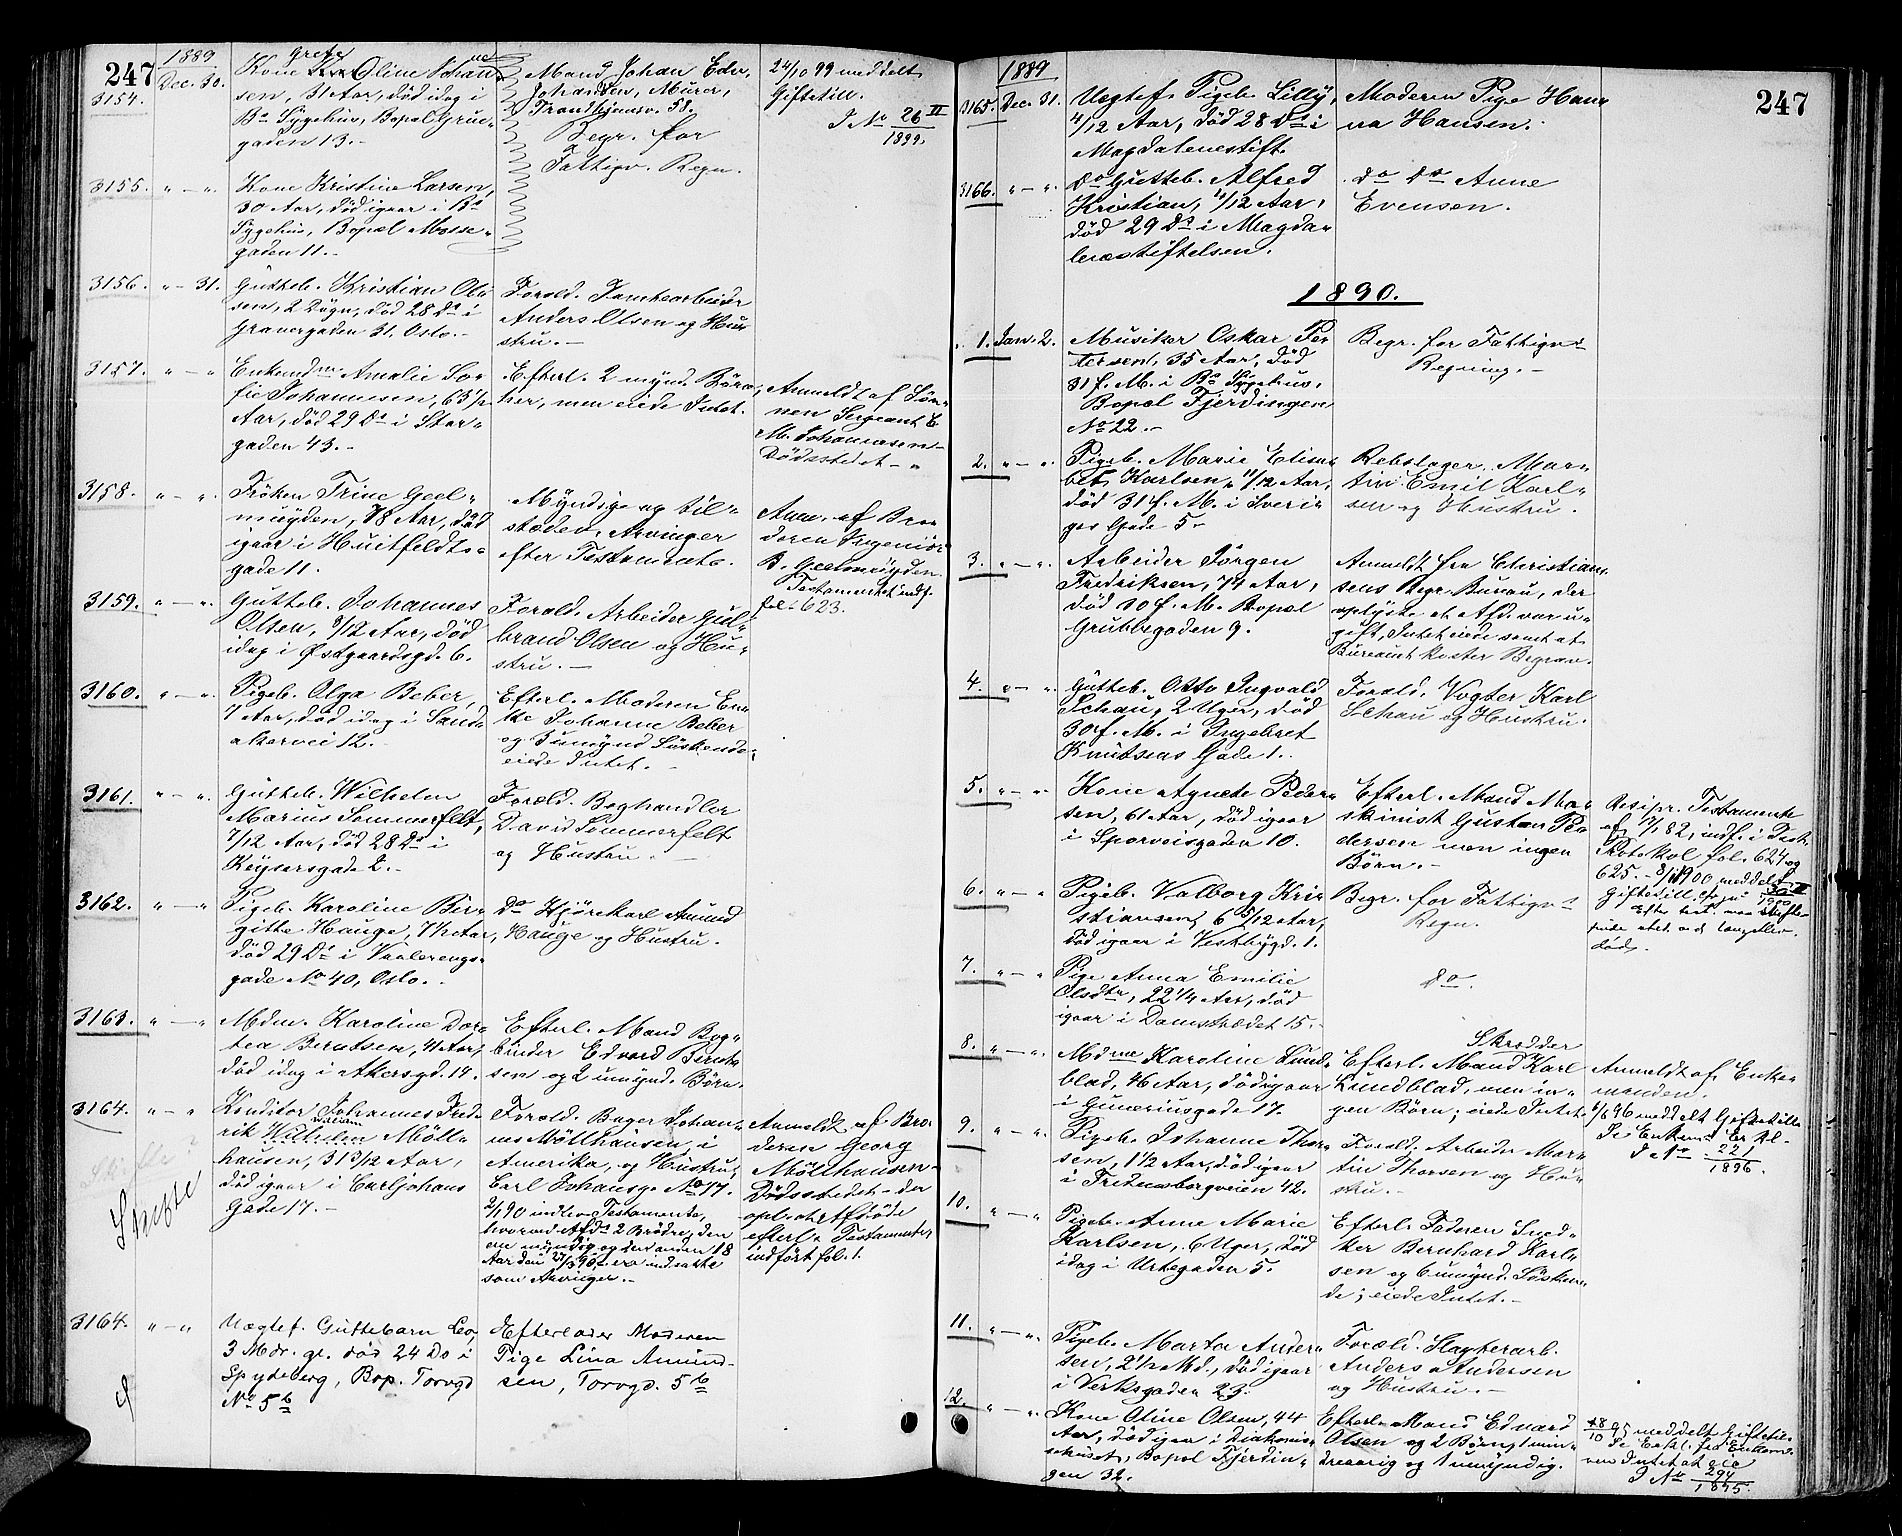 247
1889
3154. Dec. 30.
Kone Grethe Oline Johan-
sen, 31 Aar, död idag i
Bs Sygehus, Bopæl Grue-
gaden 13.-
Mand Johan Edv.
Johansen, Murer,
Trondhjemsv. 51.
Begr. for
Fattigv. Regn.
24/10 99 meddelt
Giftetill.
J No 26 II
1899.
3155. " - ".
Kone Kristine Larsen,
30 Aar, död igaar i Bs
Sygehus, Bopæl Mosse-
gaden 11.-
3156. " - 31.
Gutteb. Kristian Ol-
sen, 2 Dögn, död 28 Ds i
Grönergaden 31. Oslo.-
Foræld. Tomtearbeider
Anders Olsen og Hu-
stru.-
3157. " - "
Enkemdm Amalie So-
fie Johannesen, 63 1/2
Aar, död 29 Ds i Stor-
gaden 43.-
Efterl. 2 mynd. Börn
her, men eiede Intet.
Anmeldt af Sön-
nen Sergeant E.
M. Johannesen
Dödsstedet - "
3158. " - ".
Fröken Trine Geel-
muyden, 78 Aar, död
igaar i Huitfeldts-
gade 11.
Myndige og til-
stedev. Arvinger
efter Testament.
Anm. af Bro-
deren Ingeniör
B. Geelmuyden.
Testamentet indf.
fol. 623.
3159. " - ".
Gutteb. Johannes
Olsen, 8/12 Aar, död
idag i Østgaardsgd. 6.
Foræld. Arbeider Gul-
brand Olsen og Hu-
stru.-
3160. " - ".
Pigeb. Olga Beber,
7 Aar, död idag i Sand-
akervei 12.-
Efterl. Moderen En-
ke Johanne Beber
og 3 umynd Söskende,
eiede Intet.-
3161. " - ".
Gutteb. Wilhelm
Marius Sommerfelt,
7/12 Aar, död 28 Ds i
Keysersgade 2.-
Foræld. Boghandler
David Sommerfelt
og Hustru.-
3162. " - "
Pigeb. Karoline Bir-
gitte Hauge, 7 1/2 Aar,
död 29 Ds i Vaalerengs-
gade No 40, Oslo.
Do Kjörekarl Amund
Hauge og Hustru.
3163. " - "
Mdm. Karoline Dor-
tea Berntsen, 41 Aar,
död idag i Akersgd. 14.
Efterl. Mand Bog-
binder Edvard Bernt-
sen og 2 umynd. Börn.
3164. " - "
Konditor Johannes Fred-
rik William Möll-
hausen, 31 3/12 Aar,
död igaar i Carl Johans
Gade 17.-
Foræld. Bager Johan-
nes Möllhausen, i
Amerika, og Hustru,
Carl Johansg. No 17.
2/1 90 indlev. Testamente,
hvorved Afds 2 Brödre, den
ene myndig og den anden 18
Aar den er indsatte
som Arvinger.-
Anmeldt af Bro-
deren Georg
Möllhausen
Dödsstedet - der
opl. at Afdöde
efterl. Testamente,
indfört fol. 1.
Skifte
3164. " - "
Uægtef. Guttebarn Leo,
3 Mdr. gl. död 24 Do i
Spydeberg, Bop. Torvgd
No 5 b
Efterlader Moderen
Pige Lina Amund-
sen, Torvgd. 5 b
247
1889
3165. Dec. 31.
Uægtef. Pigeb. Lilly,
4/12 Aar, död 28 Ds i
Magdalenestift.
Moderen Pige Han-
na Hansen.
3166. " - ".
Do Gutteb. Alfred
Kristian, 1/12 Aar,
död 29 Ds i Magda-
lenestiftelsen.
do do Anne
Evensen.
1890.
1. Jan. 2.
Musiker Oskar Pe-
tersen, 35 Aar, död
31 f. M. i Bs Sygehus,
Bopæl Fjerdingen
No 22.-
Begr. for Fattigvs
Regning.-
2. " - ".
Pigeb. Marie Elisa-
bet Karlsen, 11/12 Aar,
död 31 f. M. i Sveri-
ges Gade 5.-
Rebslager Mar-
tin Emil Karl-
sen og Hustru.
3. " - ".
Arbeider Jörgen
Fredriksen, 74 Aar,
död 30 f. M. Bopæl
Grubbegaden 9.
Anmeldt fra Christian-
sens Begr. Bureau, der
oplyste at Afd. var u-
gift, Intet eiede samt at
Bureauet koster Begrav.
4. " - ".
Gutteb. Otto Ingvald
Schau, 2 Uger, död
30 f. M. i Ingebret
Knutsens Gade 1.
Foræld. Vogter Karl
Schau og Hustru.
5. " - ".
Kone Agnete Peder-
sen, 61 Aar, död igaar
i Sporveisgaden 10.
Efterl. Mand Ma-
skinist Gustav Pe-
dersen men ingen
Börn.-
Resipr. Testamente
af 7/1 82, indf. i Test.
Protokol fol. 624 og
625.- 8/1 1900 meddelt
Giftetill.
6. " - "
Pigeb. Valborg Kri-
stiansen, 6 5/12 Aar,
död igaar i Vestbygd. 1.
Begr. for Fattigvs
Regn.
7. " - "
Pige Anna Emilie
Olsdtr, 22 1/4 Aar, död
igaar i Damstrædet 15.-
do.
8. " - ".
Mdme Karoline Lund-
blad, 46 Aar, död igaar
i Gunneriusgade 17.-
Efterl. Mand Skrædder Karl
Lundblad, men in-
gen Börn, eiede Intet.
Anmeldt af Enke-
manden.
meddelt Giftetill.
J No 221
1896.
9. " - ".
Pigeb. Johanne Thor-
sen, 1 1/2 Aar, död igaar
i Fredensborgveien 42.
Foræld. Arbeider Mar-
tin Thorsen og Hu-
stru.-
10. " - "
Pigeb. Anne Marie
Karlsen, 6 Uger, död
idag i Urtegaden 5.
Efterl. Faderen Sned-
ker Bernhard Karl-
sen og 6 umynd. Sösken-
de; eiede Intet.-
11. " - ".
Pigeb. Marta Ander-
sen, 2 1/2 Md., död igaar
i Verksgaden 23.
Foræld. Slagterarb.
Anders Andersen
og Hustru.-
12. " - ".
Kone Oline Olsen, 44
Aar, död igaar i Diakonis-
sehuset, Bopæl Fjerdin-
gen 32.
Efterl. Mand Edvard
Olsen og 2 Börn, 1 min-
dreaarig og 1 umyndig.
meddelt Giftetil.
J No 294
1895.